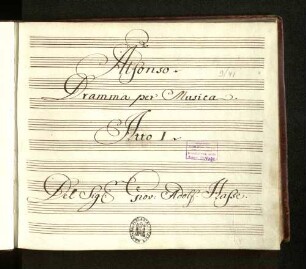 Alfonso.
Dramma per Musica.
Atto I.
Del Sig.r Giov: Adolf: Hasse.